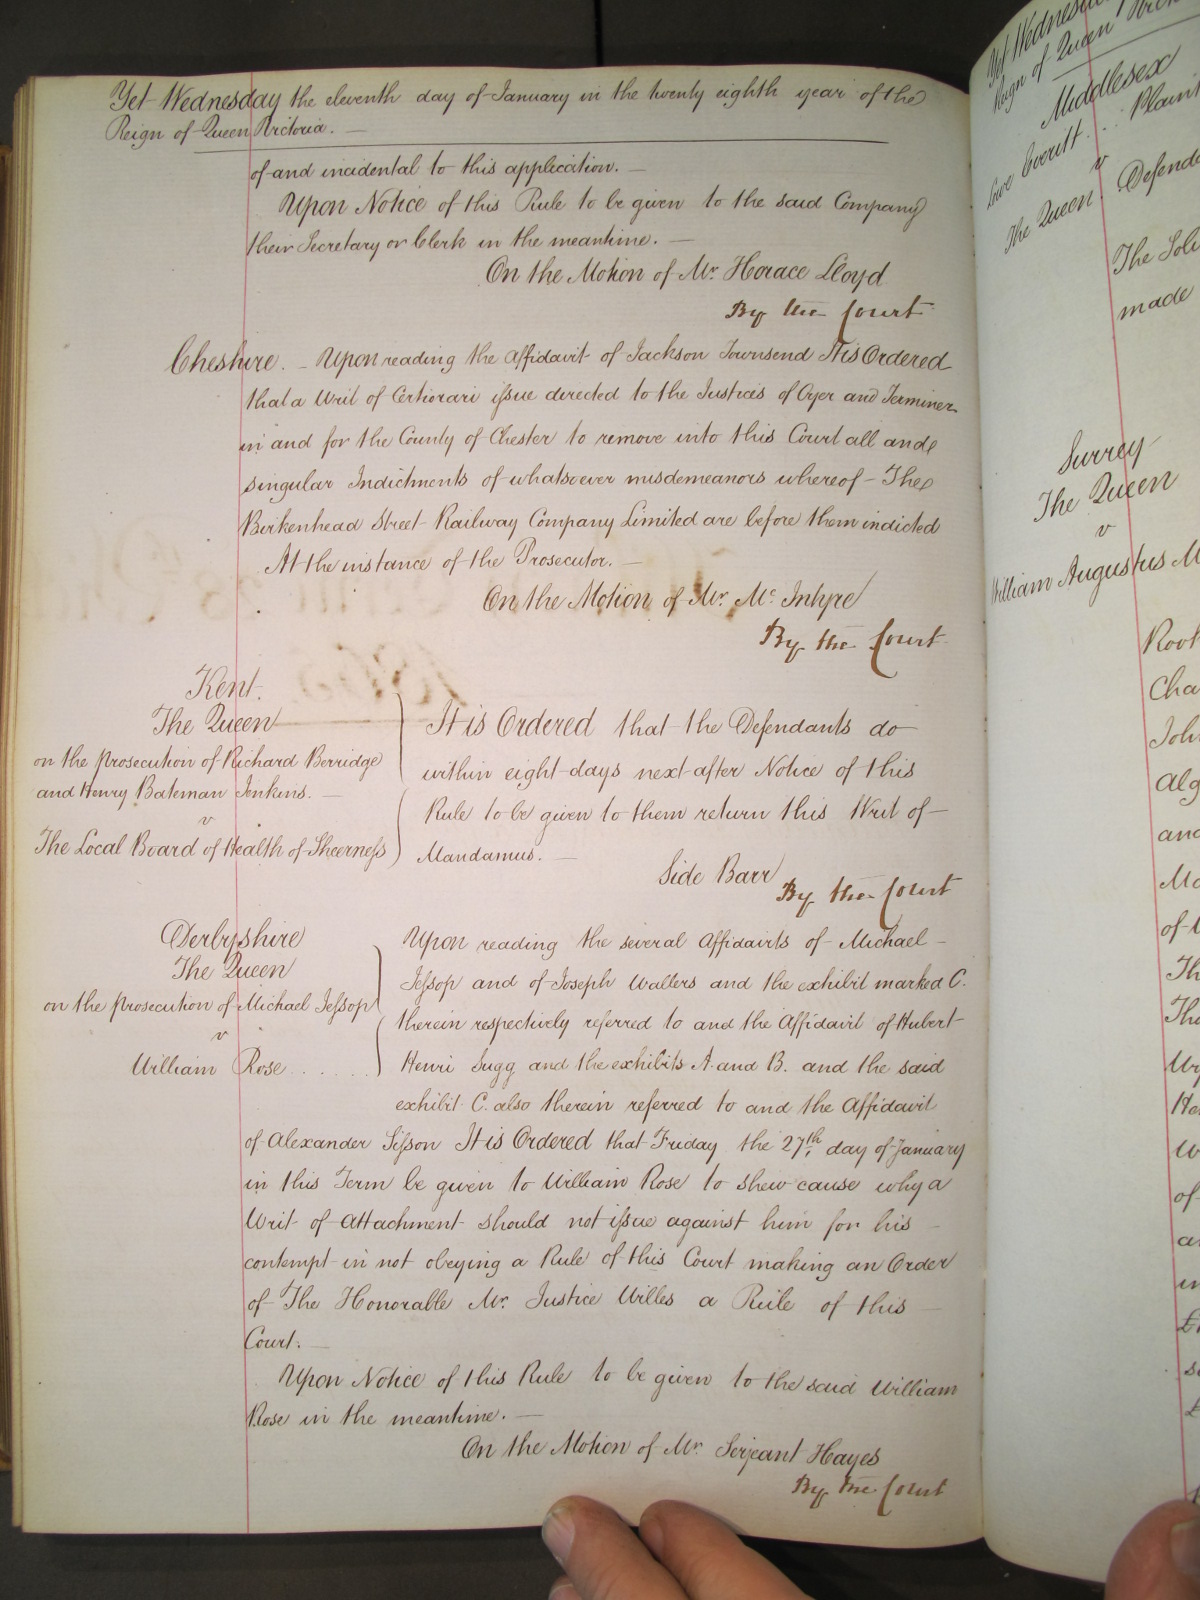 Yet Wednesday the eleventh day of January in the twenty eighth year of the
Reign of Queen Victoria. —
of and incidental to this application. —
Upon Notice of this Rule to be given to the said Company
their Secretary or Clerk in the meantime. —
On the Motion of Mr. Horace Lloyd
By the Court
Cheshire. – Upon reading the Affidavit of Jackson Townsend It is Ordered
that a Writ of Certiorari issue directed to the Justices of Oyer and Terminer
in and for the County of Chester to remove into this Court all and
singular Indictments of whatsoever misdemeanors whereof – The
Birkenhead Street Railway Company Limited are before them indicted
At the instance of the Prosecutor. —
On the Motion of Mr. Mc. Intyre
By the Court
Kent.
The Queen
on the prosecution of Richard Berridge
and Henry Bateman Jenkins. —
v
The Local Board of Health of Sheerness
It is Ordered that the Defendants do
within eight days next after Notice of this
Rule to be given to them return this Writ of
Mandamus. —
Side Barr
By the Court
Derbyshire
The Queen
on the prosecution of Michael Jessop
v
William Rose . . . . . .
Upon reading the several Affidavits of Michael –
Jessop and of Joseph Wallers and the exhibit marked C.
therein respectively referred to and the Affidavit of Hubert
Henri Sugg and the exhibits A. and B. and the said
exhibit C. also therein referred to and the Affidavit
of Alexander Sisson It is Ordered that Friday the 27th. day of January
in this Term be given to William Rose to shew cause why a
Writ of Attachment should not issue against him for his –
contempt in not obeying a Rule of this Court making an Order
of The Honorable Mr. Justice Willes a Rule of this —
Court. —
Upon Notice of this Rule to be given to the said William
Rose in the meantime. —
On the Motion of Mr. Serjeant Hayes
By the Court
Yet Wednesday
Reign of Queen
Middlesex
Everitt . . . Plaint
v
The Queen Defend
The Soli
made
Surrey
The Queen
v
William Augustus M
Root
Cha
John
Alg
and
Mo
of
Th
The